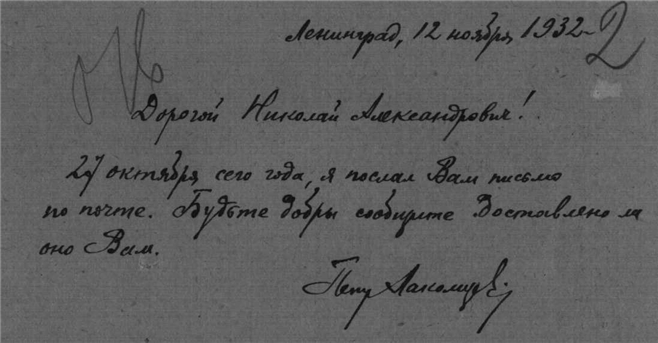 Ленинград, 12 ноября 1932 2
Дорогой Николай Александрович!
27 октября сего года, я послал Вам письмо
по почте. Будьте добры сообщите доставлено ли
оно Вам.
Петр